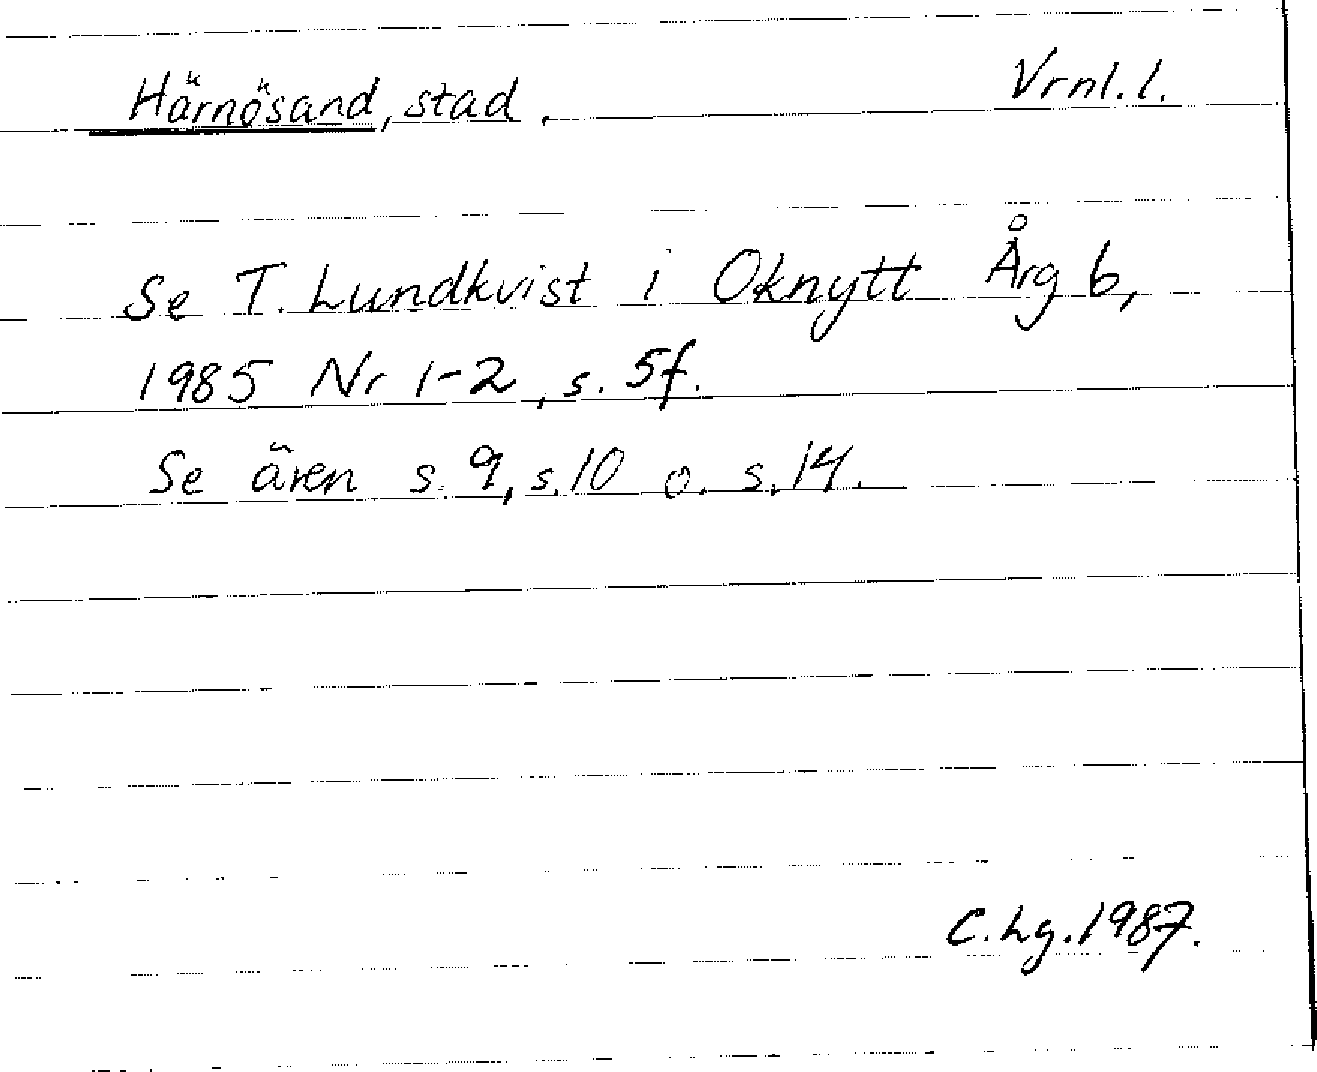 Härnösand, stad. Vrnl. l.
Se T. Lundkvist i Oknytt Årg 6,
1985 Nr 1-2, s. 5f.
Se även s. 9, s. 10 o. s. 14.
C. Lg. 1987.